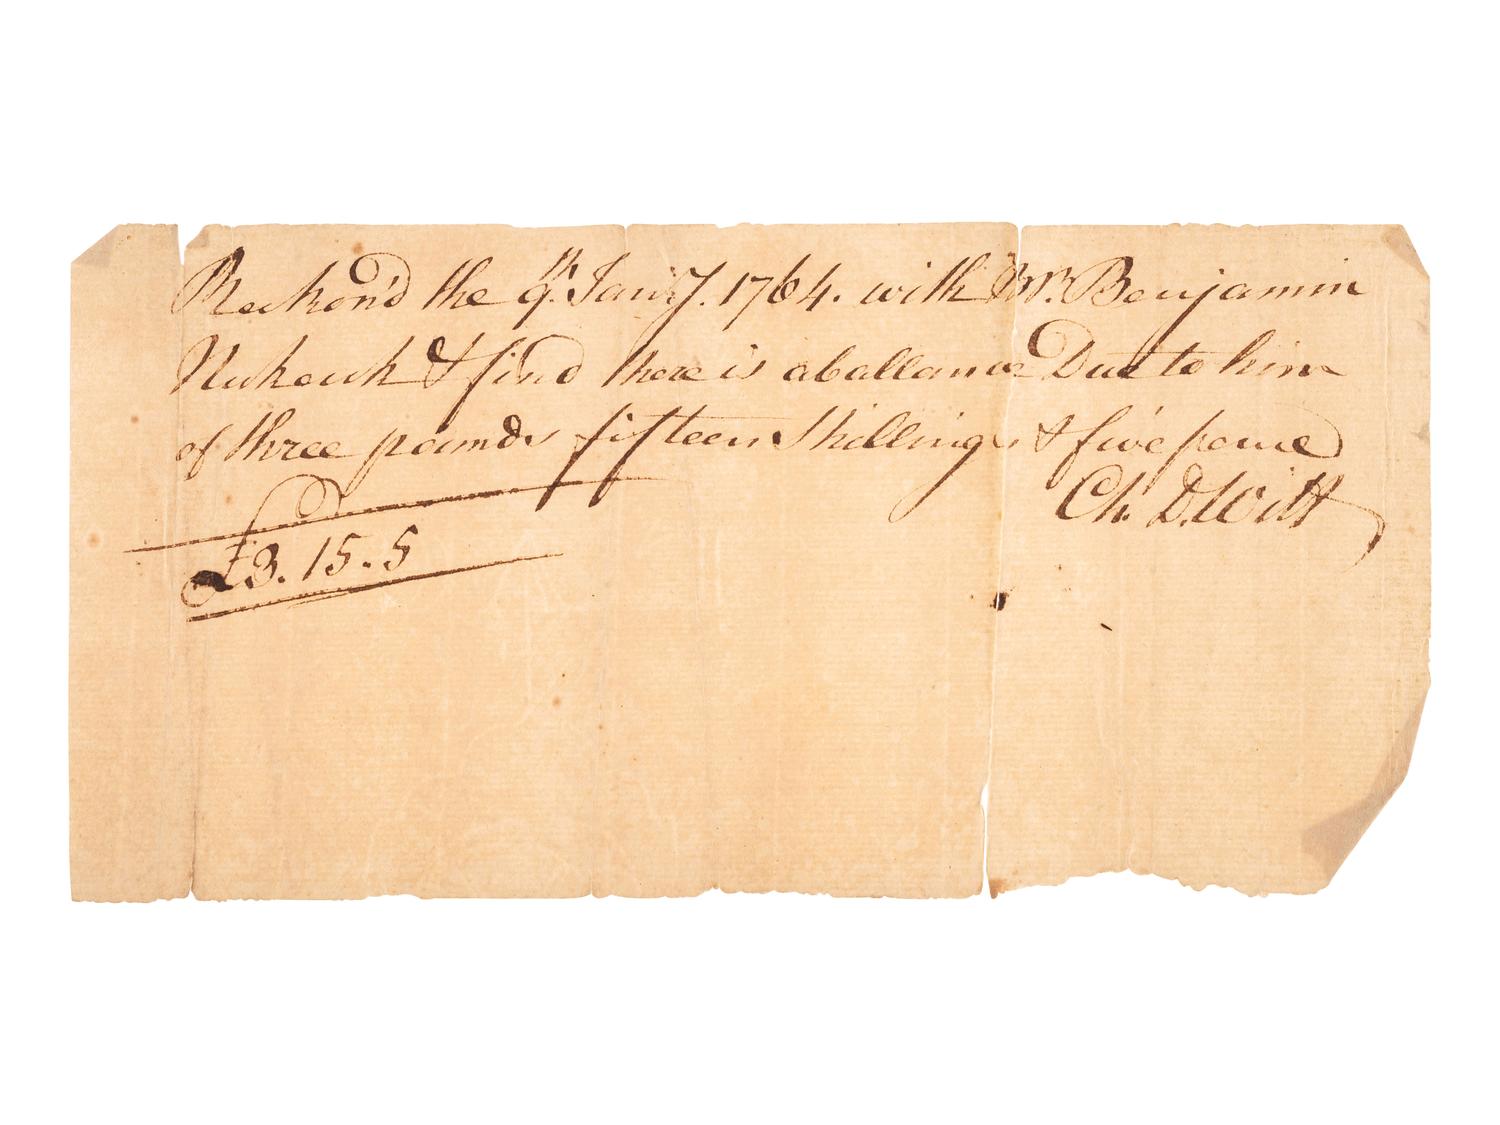 Reckon'd the 9th. Janry. 1764. with Mr. Benjamin
& find there is a ballance Due to him
of three pounds fifteen Shillings & five pence
Ch. D.Witt
£3.15.5